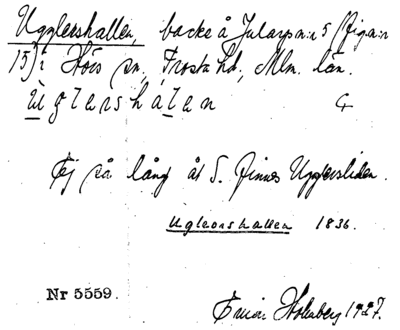 Ugglershallen, backe å Jularp n:r 5 (fig a:r
15) i Hörs sn, Frosta hd, Mlm. län.
uglershalen
Ej så långt åt S. finnes Uggersliden.
Ugleorshallen 1836.
Nr 5559.
Holmberg 1927.